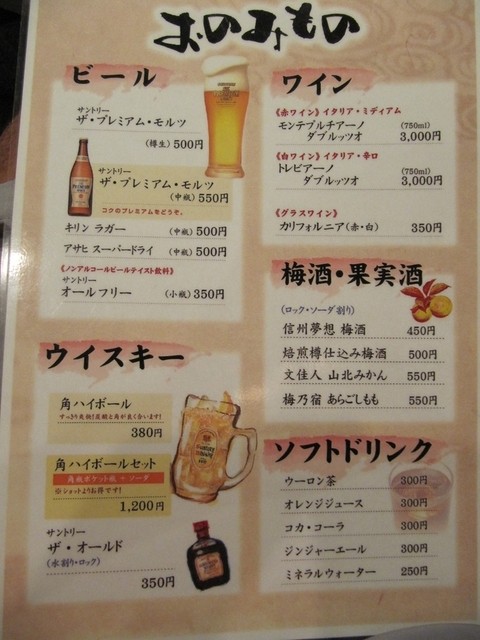 おのみもの
ビール
サントリー
ザ・プレミアム・モルツ
(樽生) 500円
サントリー
ザ・プレミアム・モルツ
(中瓶) 550円
コクのプレミアムをどうぞ。
キリン ラガー (中瓶) 500円
アサヒ スーパードライ (中瓶) 500円
《ノンアルコールビールテイスト飲料》
サントリー
オールフリー (小瓶) 350円
ウイスキー
角ハイボール
380円
角ハイボールセット
角瓶ポケット瓶 + ソーダ
※ショットよりお得です!
1,200円
サントリー
ザ・オールド
(水割り・ロック)
350円
ワイン
《赤ワイン》イタリア・ミディアム
モンテプルチアーノ (750ml)
ダブルッツオ 3,000円
《白ワイン》イタリア・辛口
トレビアーノ (750ml)
ダブルッツオ 3,000円
《グラスワイン》
カリフォルニア(赤・白) 350円
梅酒・果実酒
(ロック・ソーダ割り)
信州夢想 梅酒 450円
焙煎樽仕込み梅酒 500円
文佳人 山北みかん 550円
梅乃宿 あらごしもも 550円
ソフトドリンク
ウーロン茶 300円
オレンジジュース 300円
コカ・コーラ 300円
ジンジャーエール 300円
ミネラルウォーター 250円